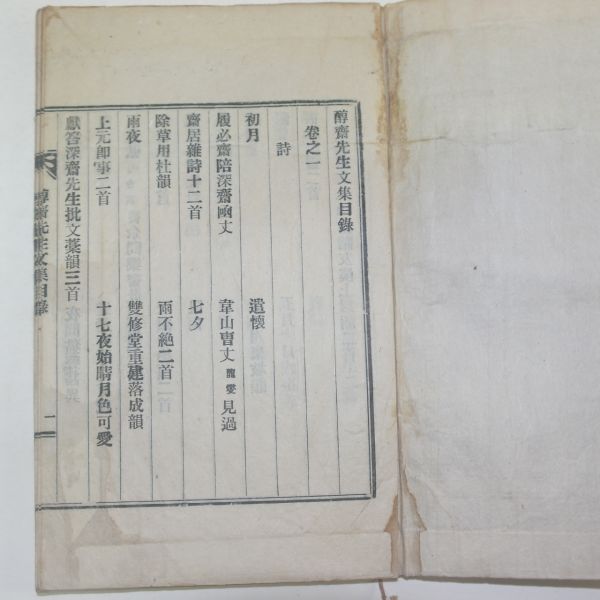 醇齋先生文集目錄
卷之一
詩
初月 遣懷
履必齋陪深齋函丈 韋山曺丈龍燮見過
齋居雜詩十二首 七夕
除草用杜韻 雨不絶二首
雨夜 雙修堂重建落成韻
上元卽事二首 十七夜始晴月色可愛
獻答深齋先生批文藁韻三首
醇齋先生文集目錄 一